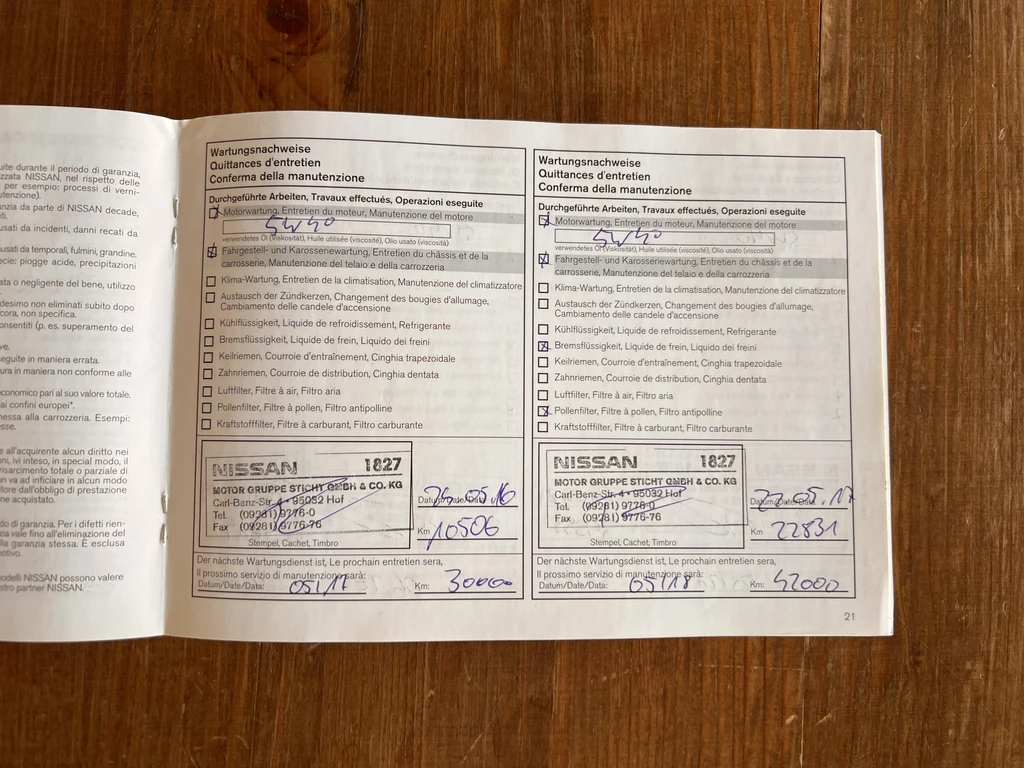 ite durante il periodo di garanzia,
zzata NISSAN, nel rispetto delle
per esempio: processi di verni-
utenzione).
nzia da parte di NISSAN decade,
ti.
usati da incidenti, danni recati da
usati da temporali, fulmini, grandine.
ecie: piogge acide, precipitazioni
ata o negligente del bene, utilizzo
desimo non eliminati subito dopo
cora, non specifica.
onsentiti (p. es. superamento del
ve.
eguite in maniera errata.
ura in maniera non conforme alle
economico pari al suo valore totale.
ai confini europei*.
nessa alla carrozzeria. Esempi:
sse.
e all'acquirente alcun diritto nei
oni, ivi inteso, in special modo, il
risarcimento totale o parziale di
n va ad inficiare in alcun modo
itore dall'obbligo di prestazione
ne acquistato.
do di garanzia. Per i difetti rien-
zia vale fino all'eliminazione del
lla garanzia stessa. È esclusa
otivo.
odelli NISSAN possono valere
stro partner NISSAN.
Wartungsnachweise
Quittances d'entretien
Conferma della manutenzione
Durchgeführte Arbeiten, Travaux effectués, Operazioni eseguite
Motorwartung, Entretien du moteur, Manutenzione del motore
5W40
verwendetes Öl (Viskosität), Huile utilisée (viscosité), Olio usato (viscosità)
Fahrgestell- und Karosseriewartung, Entretien du châssis et de la
carrosserie, Manutenzione del telaio e della carrozzeria
Klima-Wartung, Entretien de la climatisation, Manutenzione del climatizzatore
Austausch der Zündkerzen, Changement des bougies d'allumage,
Cambiamento delle candele d'accensione
Kühlflüssigkeit, Liquide de refroidissement, Refrigerante
Bremsflüssigkeit, Liquide de frein, Liquido dei freini
Keilriemen, Courroie d'entraînement, Cinghia trapezoidale
Zahnriemen, Courroie de distribution, Cinghia dentata
Luftfilter, Filtre à air, Filtro aria
Pollenfilter, Filtre à pollen, Filtro antipolline
Kraftstofffilter, Filtre à carburant, Filtro carburante
NISSAN 1827
MOTOR GRUPPE STICHT GMBH & CO. KG
Carl-Benz-Str. 4 • 95032 Hof
Tel. (09281) 9776-0
Fax (09281) 9776-76
Stempel, Cachet, Timbro
Datum/Date/Data: .05.16
Km 10506
Der nächste Wartungsdienst ist, Le prochain entretien sera,
Il prossimo servizio di manutenzione sarà:
Datum/Date/Data: 05/17 Km: 30000
Wartungsnachweise
Quittances d'entretien
Conferma della manutenzione
Durchgeführte Arbeiten, Travaux effectués, Operazioni eseguite
Motorwartung, Entretien du moteur, Manutenzione del motore
5W40
verwendetes Öl (Viskosität), Huile utilisée (viscosité), Olio usato (viscosità)
Fahrgestell- und Karosseriewartung, Entretien du châssis et de la
carrosserie, Manutenzione del telaio e della carrozzeria
Klima-Wartung, Entretien de la climatisation, Manutenzione del climatizzatore
Austausch der Zündkerzen, Changement des bougies d'allumage,
Cambiamento delle candele d'accensione
Kühlflüssigkeit, Liquide de refroidissement, Refrigerante
Bremsflüssigkeit, Liquide de frein, Liquido dei freini
Keilriemen, Courroie d'entraînement, Cinghia trapezoidale
Zahnriemen, Courroie de distribution, Cinghia dentata
Luftfilter, Filtre à air, Filtro aria
Pollenfilter, Filtre à pollen, Filtro antipolline
Kraftstofffilter, Filtre à carburant, Filtro carburante
NISSAN 1827
MOTOR GRUPPE STICHT GMBH & CO. KG
Carl-Benz-Str. 4 • 95032 Hof
Tel. (09281) 9776-0
Fax (09281) 9776-76
Stempel, Cachet, Timbro
Datum/Date/Data: 22.05.17
Km 22831
Der nächste Wartungsdienst ist, Le prochain entretien sera,
Il prossimo servizio di manutenzione sarà:
Datum/Date/Data: 05/18 Km: 42000
21